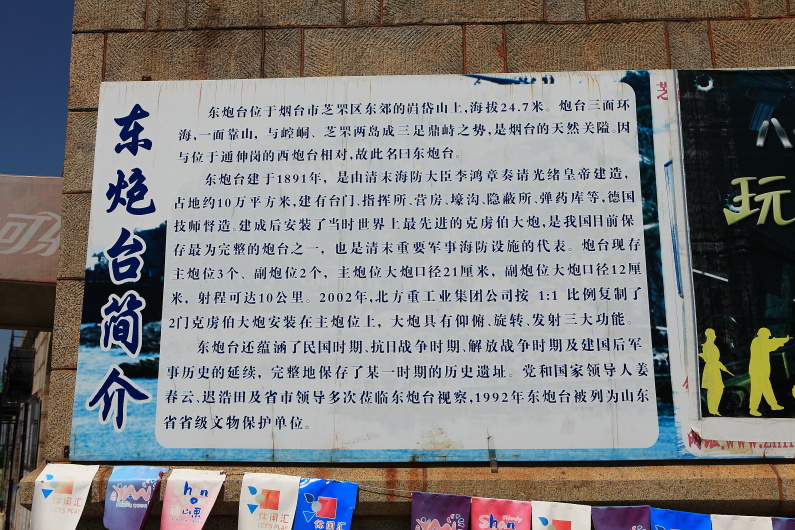 东炮台简介
东炮台位于烟台市芝罘区东郊的岿岱山上,海拔24.7米。炮台三面环
海,一面靠山,与崆峒、芝罘两岛成三足鼎峙之势,是烟台的天然关隘。因
与位于通伸岗的西炮台相对,故此名曰东炮台。
东炮台建于1891年,是由清末海防大臣李鸿章奏请光绪皇帝建造,
占地约10万平方米,建有台门、指挥所、营房、壕沟、隐蔽所、弹药库等,德国
技师督造。建成后安装了当时世界上最先进的克虏伯大炮,是我国目前保
存最为完整的炮台之一,也是清末重要军事海防设施的代表。炮台现存
主炮位3个、副炮位2个,主炮位大炮口径21厘米,副炮位大炮口径12厘
米,射程可达10公里。2002年,北方重工业集团公司按 1:1 比例复制了
2门克虏伯大炮安装在主炮位上,大炮具有仰俯、旋转、发射三大功能。
东炮台还蕴涵了民国时期、抗日战争时期、解放战争时期及建国后军
事历史的延续,完整地保存了某一时期的历史遗址。党和国家领导人姜
春云、迟浩田及省市领导多次莅临东炮台视察,1992年东炮台被列为山东
省省级文物保护单位。
芝
八
玩
可
www.
休闲汇
LET'S PLAY
休闲汇
LET'S PLAY
休闲汇